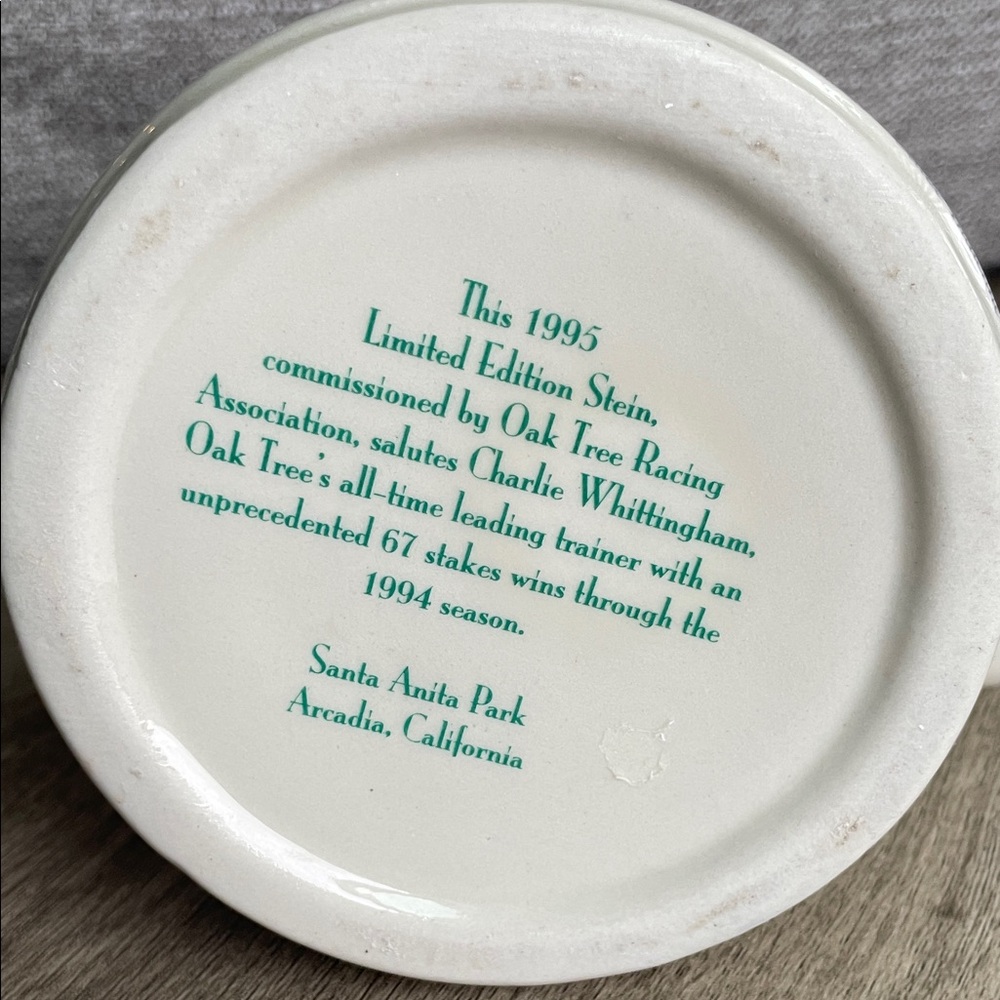 This 1995
Limited Edition Stein,
commissioned by Oak Tree Racing
Association, salutes Charlie Whittingham,
Oak Tree's all-time leading trainer with an
unprecedented 67 stakes wins through the
1994 season.
Santa Anita Park
Arcadia, California